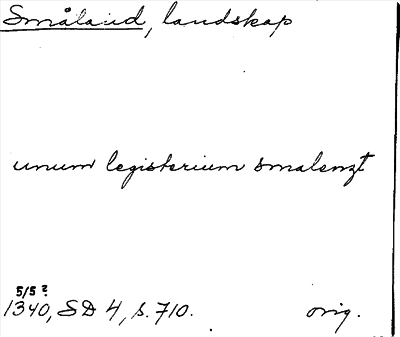 Småland, landskap
unum legisterium smalenzt
5/5 ?
1340, SD 4, s. 710. orig.